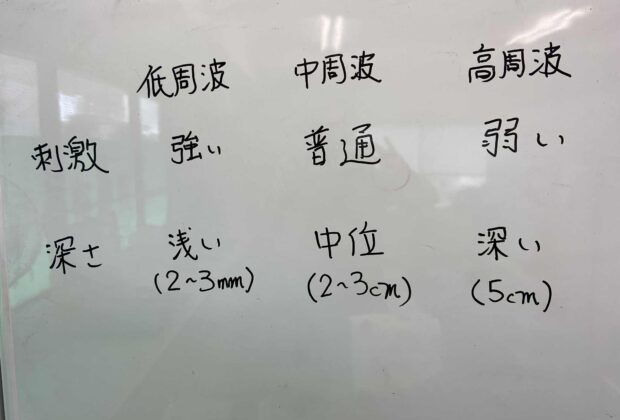 低周波 中周波 高周波
刺激 強い 普通 弱い
深さ 浅い 中位 深い
(2~3mm) (2~3cm) (5cm)